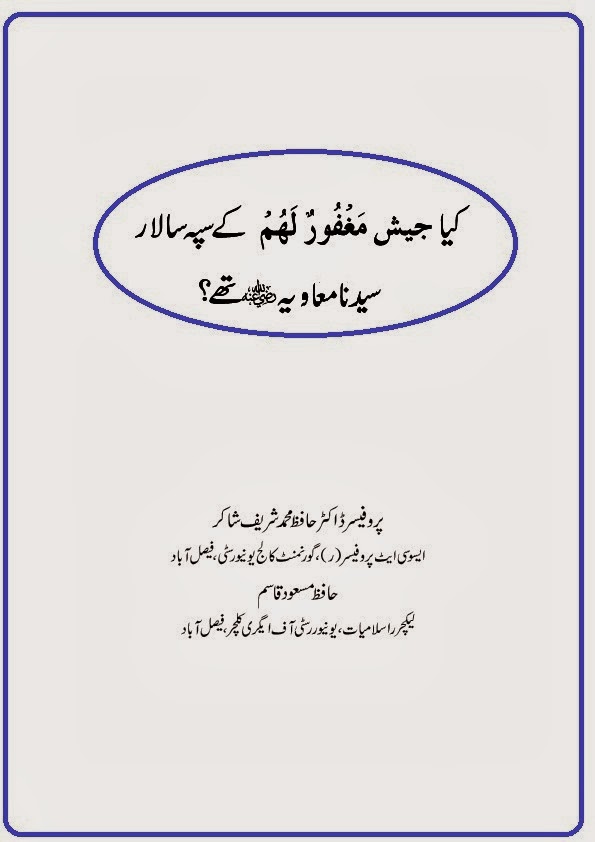 کیا جیش مَغْفُورٌ لَهُمْ کے سپہ سالار
سیدنا معاویہ رضی اللہ عنہ تھے؟
پروفیسر ڈاکٹر حافظ محمد شریف شاکر
ایسوسی ایٹ پروفیسر (ر)، گورنمنٹ کالج یونیورسٹی، فیصل آباد
حافظ مسعود قاسم
لیکچرر اسلامیات، یونیوررسٹی آف ایگری کلچر، فیصل آباد